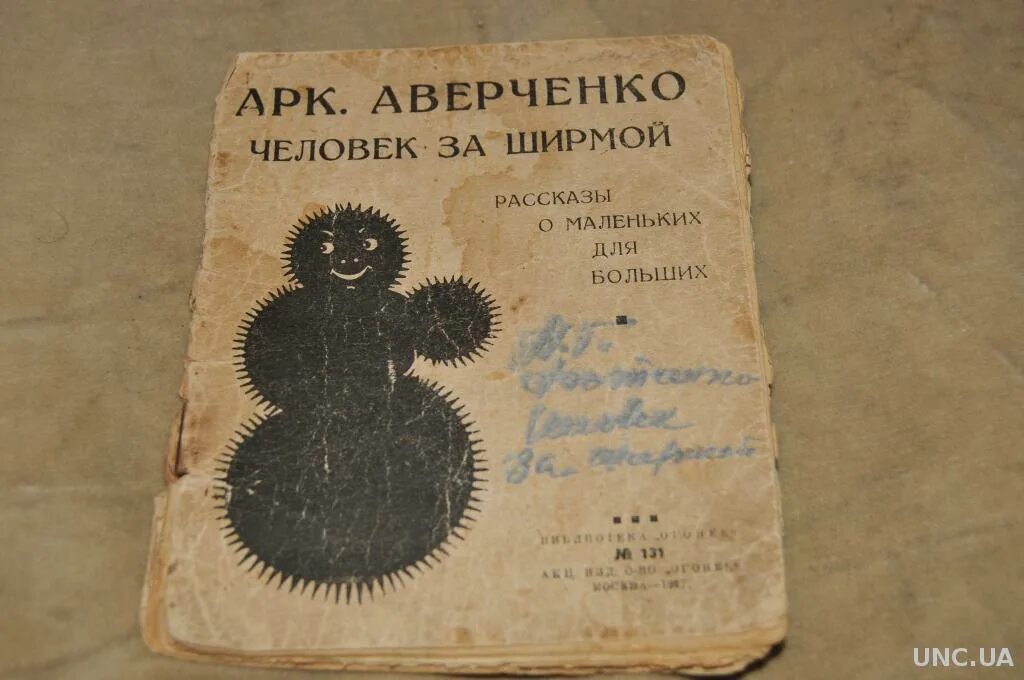 АРК. АВЕРЧЕНКО
ЧЕЛОВЕК ЗА ШИРМОЙ
РАССКАЗЫ
О МАЛЕНЬКИХ
ДЛЯ
БОЛЬШИХ
за
БИБЛИОТЕКА „ОГОНЕК"
№ 131
АКЦ. ИЗД. О-ВО „ОГОНЕК"
МОСКВА—1927.
UNC.UA